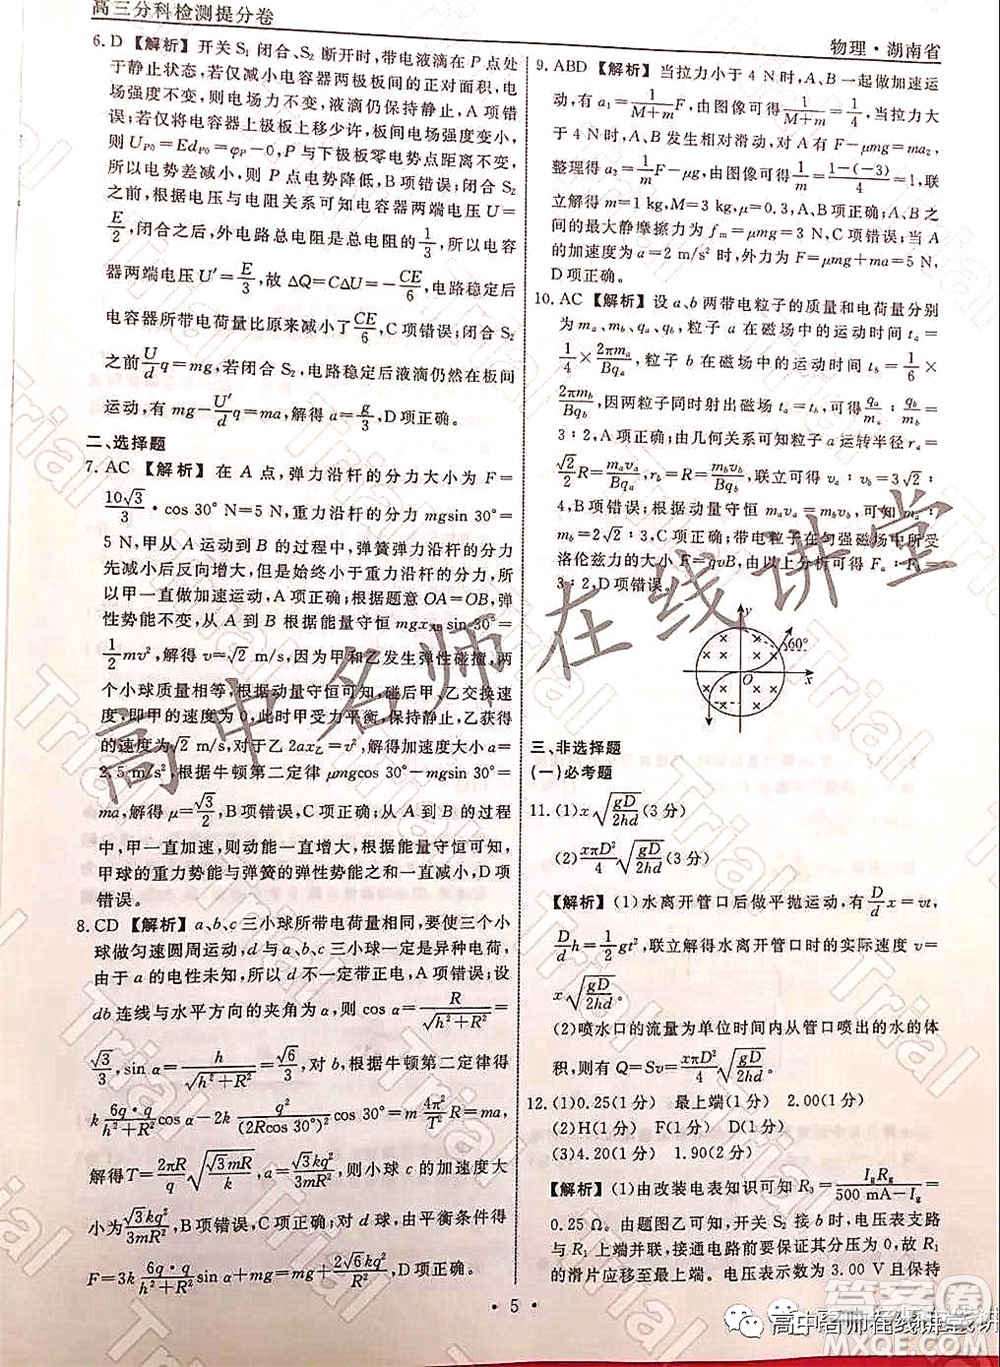 高三分科检测提分卷
物理·湖南省
6. D 【解析】开关 S₁ 闭合、S₂ 断开时,带电液滴在 P 点处
于静止状态,若仅减小电容器两极板间的正对面积,由于
场强不变,则电场力不变,液滴仍保持静止,A 项错
误;若仅将电容器上极板上移少许,板间电场强度变小,
则 U_{P0}=Ed_{P0}=φ_P-0,P 与下极板零电势点距离不变,
所以电势差减小,P 点电势降低,B 项错误;闭合 S₂
前,根据电压与电阻关系可知电容器两端电压 U=
E/2,闭合之后,外电路总电阻是总电阻的 1/3,所以电容
器两端电压 U'=E/3,故 ΔQ=CΔU=-CE/6,电路稳定后
电容器所带电荷量比原来减小了 CE/6,C 项错误;闭合 S₂
之前 (U/d)q=mg,闭合 S₂,电路稳定后液滴仍然在板间
运动,有 mg-(U'/d)q=ma,解得 a=g/3,D 项正确。
二、选择题
7. AC 【解析】在 A 点,弹力沿杆的分力大小为 F=
10√3/3·cos 30° N=5 N,重力沿杆的分力 mgsin 30°=
5 N,甲从 A 运动到 B 的过程中,弹簧弹力沿杆的分力
先减小后反向增大,但是始终小于重力沿杆的分力,所
以甲一直做加速运动;根据题意 OA=OB,弹簧的弹
性势能不变,从 A 到 B 根据能量守恒 mgx_{AB}sin 30°=
(1/2)mv²,解得 v=√2 m/s,因为甲和乙发生弹性碰撞,两
个小球质量相等,根据动量守恒可知,碰后甲、乙交换速
度,所以甲的速度为 0,此时甲受力平衡,保持静止,乙获得
的速度为√2 m/s,对于乙 2ax_乙=v²,解得加速度大小 a=
2.5 m/s²,根据牛顿第二定律 μmgcos 30°-mgsin 30°=
ma,解得 μ=√3/2,B 项错误、C 项正确;从 A 到 B 的过程
中,甲一直加速,则动能一直增大,根据能量守恒可知,
甲球的重力势能与弹簧的弹性势能之和一直减小,D 项
错误。
8. CD 【解析】a、b、c 三小球所带电荷量相同,要使三个小
球做匀速圆周运动,d 与 a、b、c 三小球一定是异种电荷,
由于 a 的电性未知,所以 d 不一定带正电,A 项错误;设
db 连线与水平方向的夹角为 α,则 cos α=R/√(h²+R²)=
√3/3,sin α=h/√(h²+R²)=√6/3,对 b,根据牛顿第二定律得
k(6q·q/(h²+R²))cos α-2k(q²/(2Rcos 30°)²)cos 30°=m(4π²/T²)R,
解得 T=(2πR/q)√(√3mR/k),则小球 c 的加速度大
小为 √3kq²/3mR²,B 项错误、C 项正确;对 d,由平衡条件得
F=3k(6q·q/(h²+R²))sin α+mg=2√6kq²/R²+mg,D 项正确。
9. ABD 【解析】当拉力小于 4 N 时,A、B 一起做加速运
动,有 a₁=(1/(M+m))F,由图像可得 1/(M+m)=1/4,当拉力大
于 4 N 时,A、B 发生相对滑动,对 A 有 F-μmg=ma₂,
整理得 a₂=(1/m)F-μg,由图像可得 1/m=(1-(-3))/4,联
立解得 m=1 kg,M=3 kg,μ=0.3,A、B 项正确;A、B 间
的最大静摩擦力为 μmg=3 N,C 项错误;当滑块 A
的加速度为 a=2 m/s² 时,外力为 F=μmg+ma=5 N,
D 项正确。
10. AC 【解析】设 a、b 两带电粒子的质量和电荷量分别
为 mₐ、m_b、qₐ、q_b,粒子 a 在磁场中的运动时间 tₐ=
1/4×2πmₐ/Bqₐ,粒子 b 在磁场中的运动时间 t_b=1/6×
2πm_b/Bq_b,因两粒子同时射出磁场 tₐ=t_b,可得 qₐ/mₐ:q_b/m_b=
3:2,A 项正确;由几何关知识可得粒子 a 运转半径 rₐ=
(√2/2)R=mₐvₐ/Bqₐ,r_b=R=m_bv_b/Bq_b,联立可得 vₐ:v_b=3√2:
4,B 项错误;由于 mₐvₐ=m_bv_b,所以 mₐ:
m_b=2√2:3,C 项正确;带电粒子在匀强磁场中所受
洛伦兹力的大小 F=qvB,可得 Fₐ:F_b=
3:2,D 项错误。
y
60°
O
x
三、非选择题
(一)必考题
11. (1)x√(gD/2hd)(3 分)
(2)(xπD²/4)√(gD/2hd)(3 分)
【解析】(1)水离开管口后做平抛运动,有 (D/d)x=vt,
(D/d)h=(1/2)gt²,联立解得水离开管口时的实际速度为
x√(gD/2hd)。
(2)喷水口的流量为单位时间内从管口喷出的水的体
积,则有 Q=Sv=(xπD²/4)√(gD/2hd)。
12. (1)0.25(1 分) 最上端(1 分) 2.00(1 分)
(2)H(1 分) F(1 分) D(1 分)
(3)4.20(1 分) 1.90(2 分)
【解析】(1)由改装电表知识可知 R₃=I_gR_g/(500 mA-I_g)=
0.25 Ω。由题图乙可知,开关 S₂ 接 b 时,电压表支路
与 R₁ 上端并联,接通电路前要保证其分压为 0,故 R₁
的滑片应移至最上端。电压表示数为 3.00 V 且保持
·5·
高中名师在线讲堂
Trial
答案圈
高中名师在线讲堂